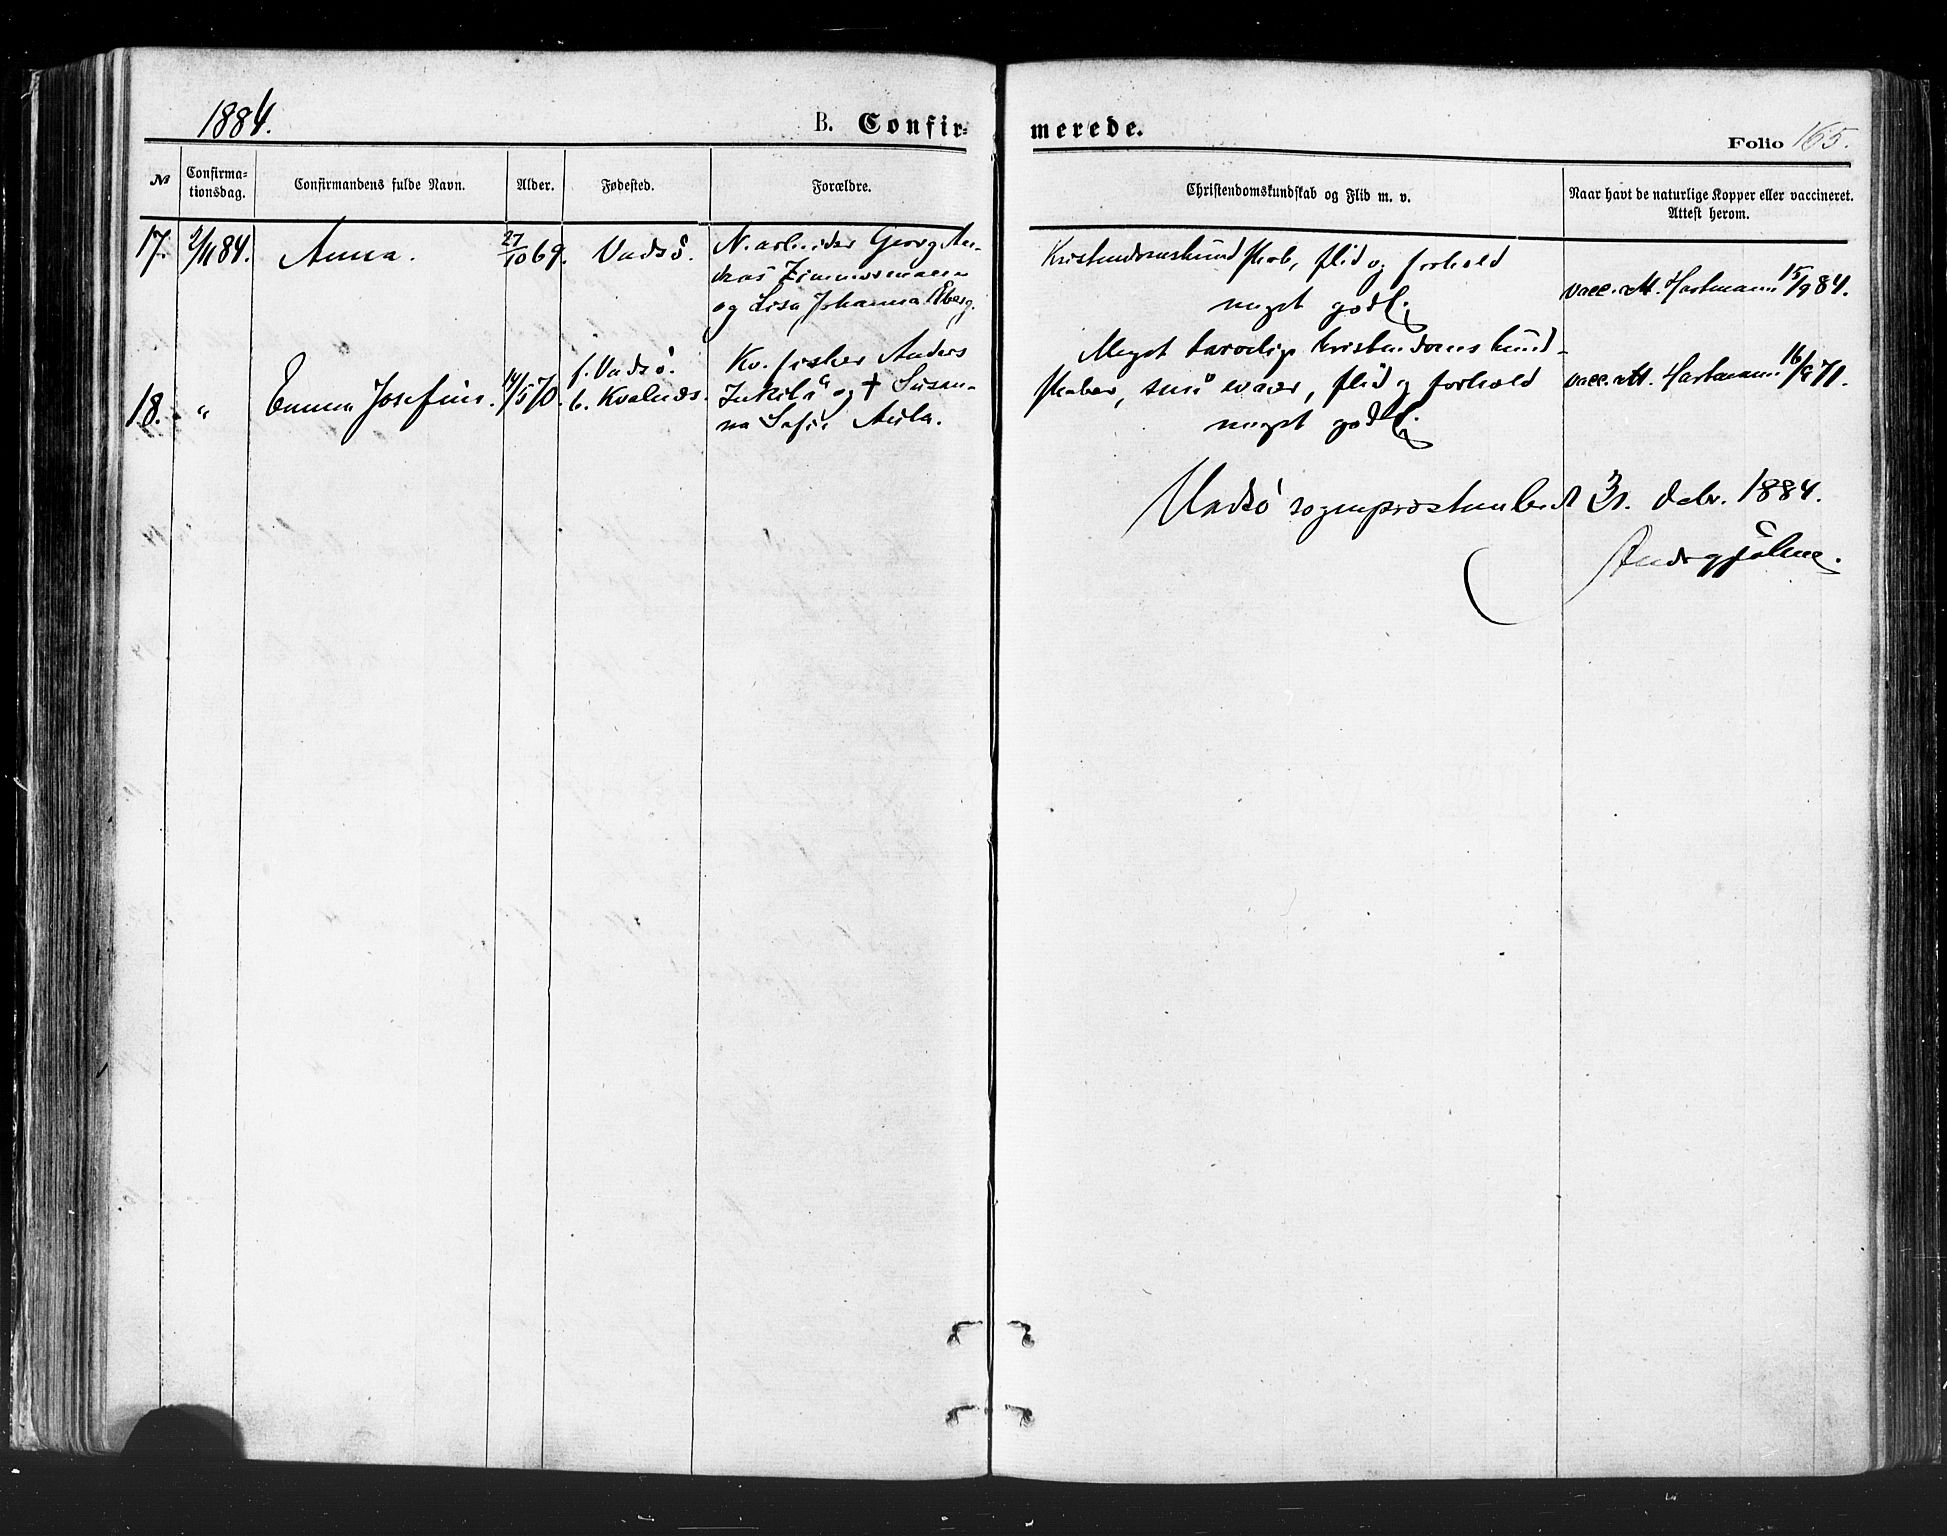 1884.
B. Confirmerede.
Folio 165.
№
Confirma-
tionsdag.
Confirmandens fulde Navn.
Alder.
Fødested.
Forældre.
Christendomskundskab og Flid m. v.
Naar havt de naturlige Kopper eller vaccineret.
Attest herom.
17. 2/11 84. Anna. 27/10 69. Vadsö. N. arbeider Georg An-
dreas Zimmermann
og Lisa Johanna Åberg.
Kristendomskundskab, flid og forhold
meget godt.
vacc. att. Hartmann 15/9 84.
18. " Emma Josefine. 14/5 70. f. Vadsö.
b. Kvalnæs.
Kv. fisker Anders
Inkilä og † Susan-
na Sofie Aula.
Meget tarvelige kristendomskund-
skaber, små evner, flid og forhold
meget godt.
vacc. att. Hartmann 16/9 71.
Vadsö sogneprestembede 31. debr. 1884.